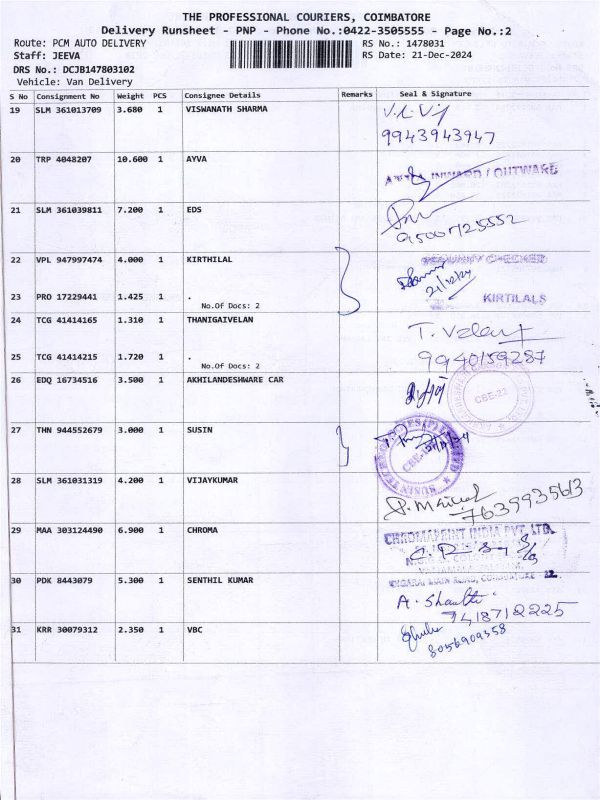 THE PROFESSIONAL COURIERS, COIMBATORE
Delivery Runsheet - PNP - Phone No.:0422-3505555 - Page No.:2
Route: PCM AUTO DELIVERY RS No.: 1478031
Staff: JEEVA RS Date: 21-Dec-2024
DRS No.: DCJB147803102
Vehicle: Van Delivery
S No Consignment No Weight PCS Consignee Details Remarks Seal & Signature
19 SLM 361013709 3.680 1 VISWANATH SHARMA
9943943947
20 TRP 4048207 10.600 1 AYVA
INWARD / OUTWARD
21 SLM 361039811 7.200 1 EDS
22 VPL 947997474 4.000 1 KIRTHILAL
21/12/24
23 PRO 17229441 1.425 1 .
KIRTILALS
No.Of Docs: 2
24 TCG 41414165 1.310 1 THANIGAIVELAN
T. Velan
25 TCG 41414215 1.720 1 .
9940159287
No.Of Docs: 2
26 EDQ 16734516 3.500 1 AKHILANDESHWARE CAR
CBE-22
27 THN 944552679 3.000 1 SUSIN
28 SLM 361031319 4.200 1 VIJAYKUMAR
7639935613
29 MAA 303124490 6.900 1 CHROMA
CHROMAPRINT INDIA PVT. LTD.
30 PDK 8443079 5.300 1 SENTHIL KUMAR
A. Shanthi
7418712225
31 KRR 30079312 2.350 1 VBC
8056909358